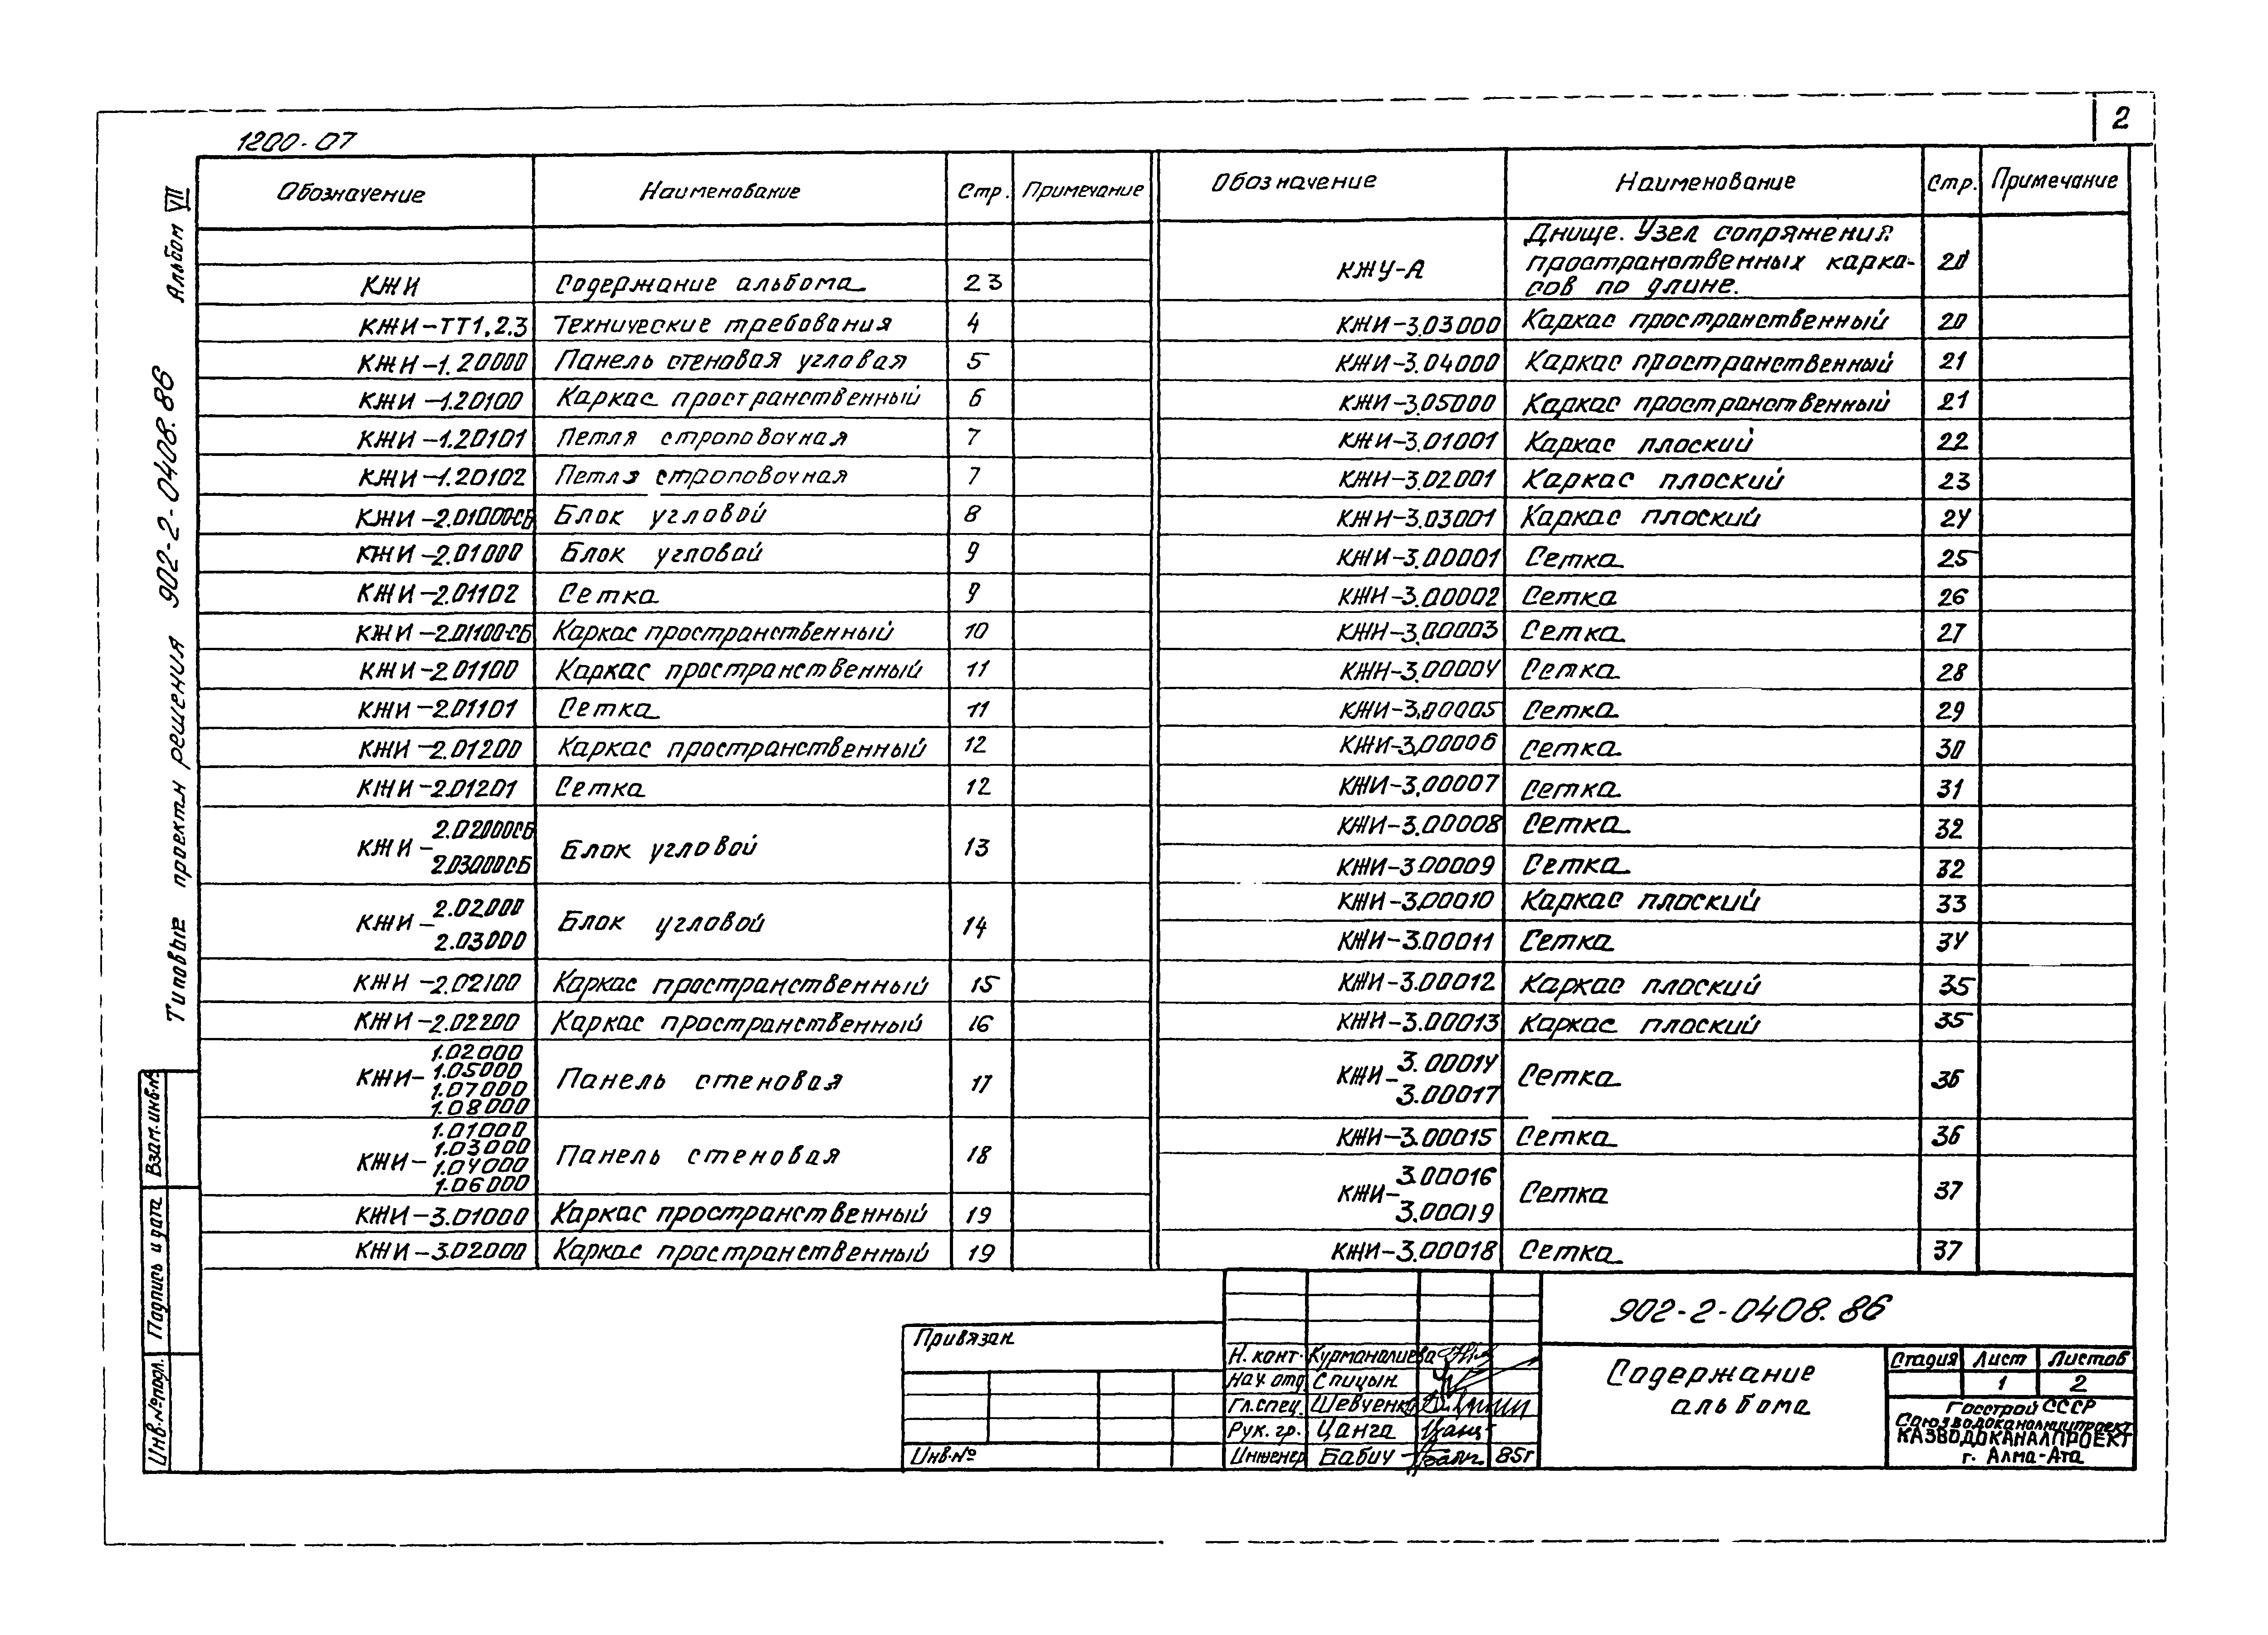 2
1200-07
Альбом VII
Типовые проектн решения 902-2-0408.86
Взам.инв.№
Подпись и дата
Инв.№подл.
Обозначение Наименование Стр. Примечание
КЖИ Содержание альбома 23
КЖИ-ТТ1.2.3 Технические требования 4
КЖИ-1.20000 Панель стеновая угловая 5
КЖИ-1.20100 Каркас пространственный 6
КЖИ-1.20101 Петля строповочная 7
КЖИ-1.20102 Петля строповочная 7
КЖИ-2.01000СБ Блок угловой 8
КЖИ-2.01000 Блок угловой 9
КЖИ-2.01102 Сетка 9
КЖИ-2.01100-СБ Каркас пространственный 10
КЖИ-2.01100 Каркас пространственный 11
КЖИ-2.01101 Сетка 11
КЖИ-2.01200 Каркас пространственный 12
КЖИ-2.01201 Сетка 12
КЖИ- 2.02000СБ
2.03000СБ Блок угловой 13
КЖИ- 2.02000
2.03000 Блок угловой 14
КЖИ-2.02100 Каркас пространственный 15
КЖИ-2.02200 Каркас пространственный 16
КЖИ- 1.02000
1.05000
1.07000
1.08000 Панель стеновая 17
КЖИ- 1.01000
1.03000
1.04000
1.06000 Панель стеновая 18
КЖИ-3.01000 Каркас пространственный 19
КЖИ-3.02000 Каркас пространственный 19
Обозначение Наименование Стр. Примечание
КЖУ-А Днище. Узел сопряжения
пространственных карка-
сов по длине. 20
КЖИ-3.03000 Каркас пространственный 20
КЖИ-3.04000 Каркас пространственный 21
КЖИ-3.05000 Каркас пространственный 21
КЖИ-3.01001 Каркас плоский 22
КЖИ-3.02001 Каркас плоский 23
КЖИ-3.03001 Каркас плоский 24
КЖИ-3.00001 Сетка 25
КЖИ-3.00002 Сетка 26
КЖИ-3.00003 Сетка 27
КЖИ-3.00004 Сетка 28
КЖИ-3.00005 Сетка 29
КЖИ-3.00006 Сетка 30
КЖИ-3.00007 Сетка 31
КЖИ-3.00008 Сетка 32
КЖИ-3.00009 Сетка 32
КЖИ-3.00010 Каркас плоский 33
КЖИ-3.00011 Сетка 34
КЖИ-3.00012 Каркас плоский 35
КЖИ-3.00013 Каркас плоский 35
КЖИ- 3.00014
3.00017 Сетка 36
КЖИ-3.00015 Сетка 36
КЖИ- 3.00016
3.00019 Сетка 37
КЖИ-3.00018 Сетка 37
Привязан
Инв.№
Н. конт. Курманалиева
Нач. отд. Спицын
Гл.спец. Шевченко
Рук. гр. Цанга
Инженер Бабич 85г
902-2-0408.86
Содержание
альбома
Стадия Лист Листов
1 2
Госстрой СССР
Союзводоканалниипроект
КАЗВОДОКАНАЛПРОЕКТ
г. Алма-Ата